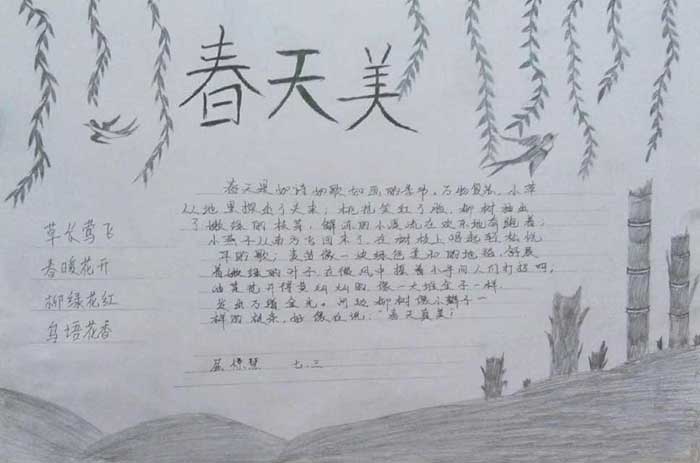 春天美
草长莺飞
春暖花开
柳绿花红
鸟语花香
春天是如诗如歌如画的季节。万物复苏，小草
从地里探出了头来；桃花笑红了脸，柳树抽出
了嫩绿的枝芽，解冻的小溪流在欢乐地奔跑着；
小燕子从南方飞回来了在树枝上唱起轻松悦
耳的歌；麦苗像一波绿色柔和的地毯，舒展
着嫩绿的叶子，在微风中摆着小手向人们打招呼。
油菜花开得黄灿灿的像一大堆金子一样，
发出万道金光。河边柳树像小辫子一
样的枝条，好像在说："春天真美！
七.三